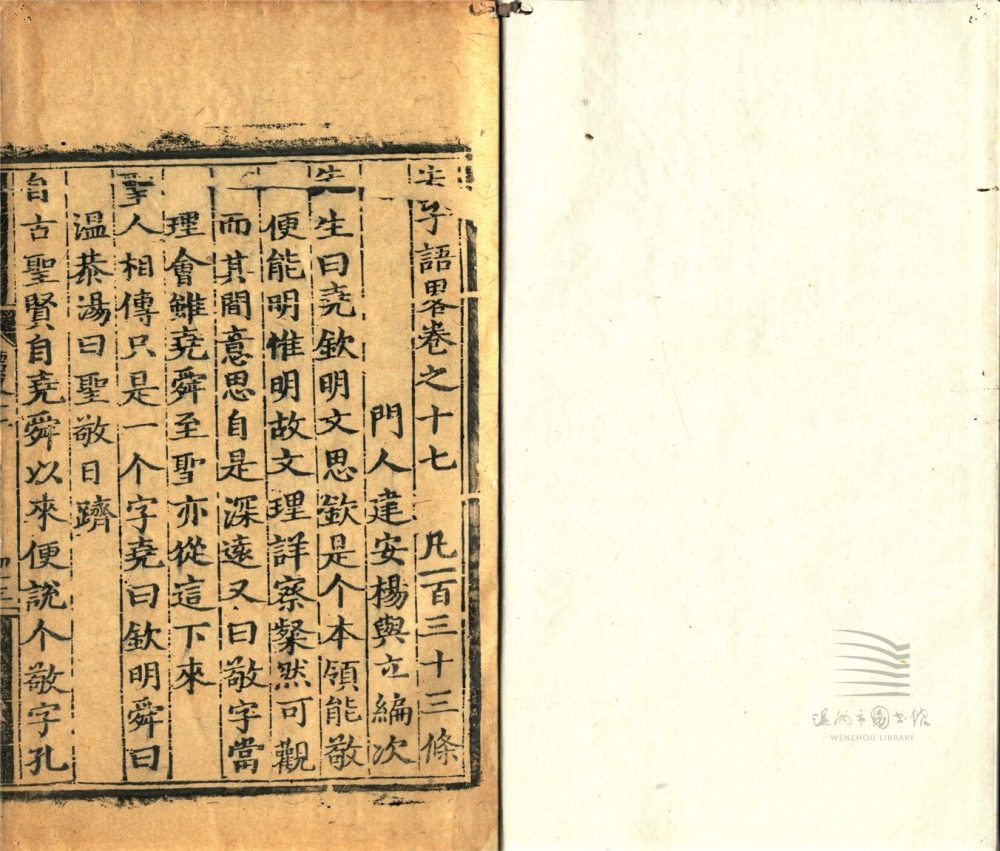 子語畧卷之十七　凡一百三十三條
門人建安楊與立編次
生曰堯欽明文思欽是个本領能敬
便能明惟明故文理詳察粲然可觀
而其間意思自是深遠又曰敬字當
理會雖堯舜至聖亦從這下來
聖人相傳只是一个字堯曰欽明舜曰
溫恭湯曰聖敬日躋
自古聖賢自堯舜以來便說个敬字孔
温州市图书馆
WENZHOU LIBRARY